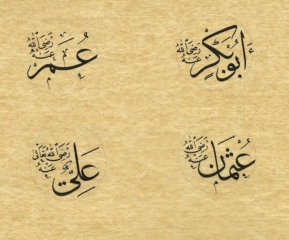 أَبُو بَكْرٍ رَضِيَ اللّٰهُ عَنْهُ
عُمَرُ رَضِيَ اللّٰهُ عَنْهُ
عُثْمَانُ رَضِيَ اللّٰهُ عَنْهُ
عَلِيٌّ رَضِيَ اللّٰهُ تَعَالَى عَنْهُ